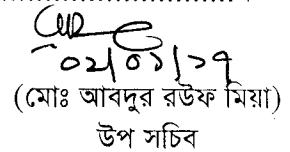 ০২/০১/১৭
(মোঃ আবদুর রউফ মিয়া)
উপ সচিব